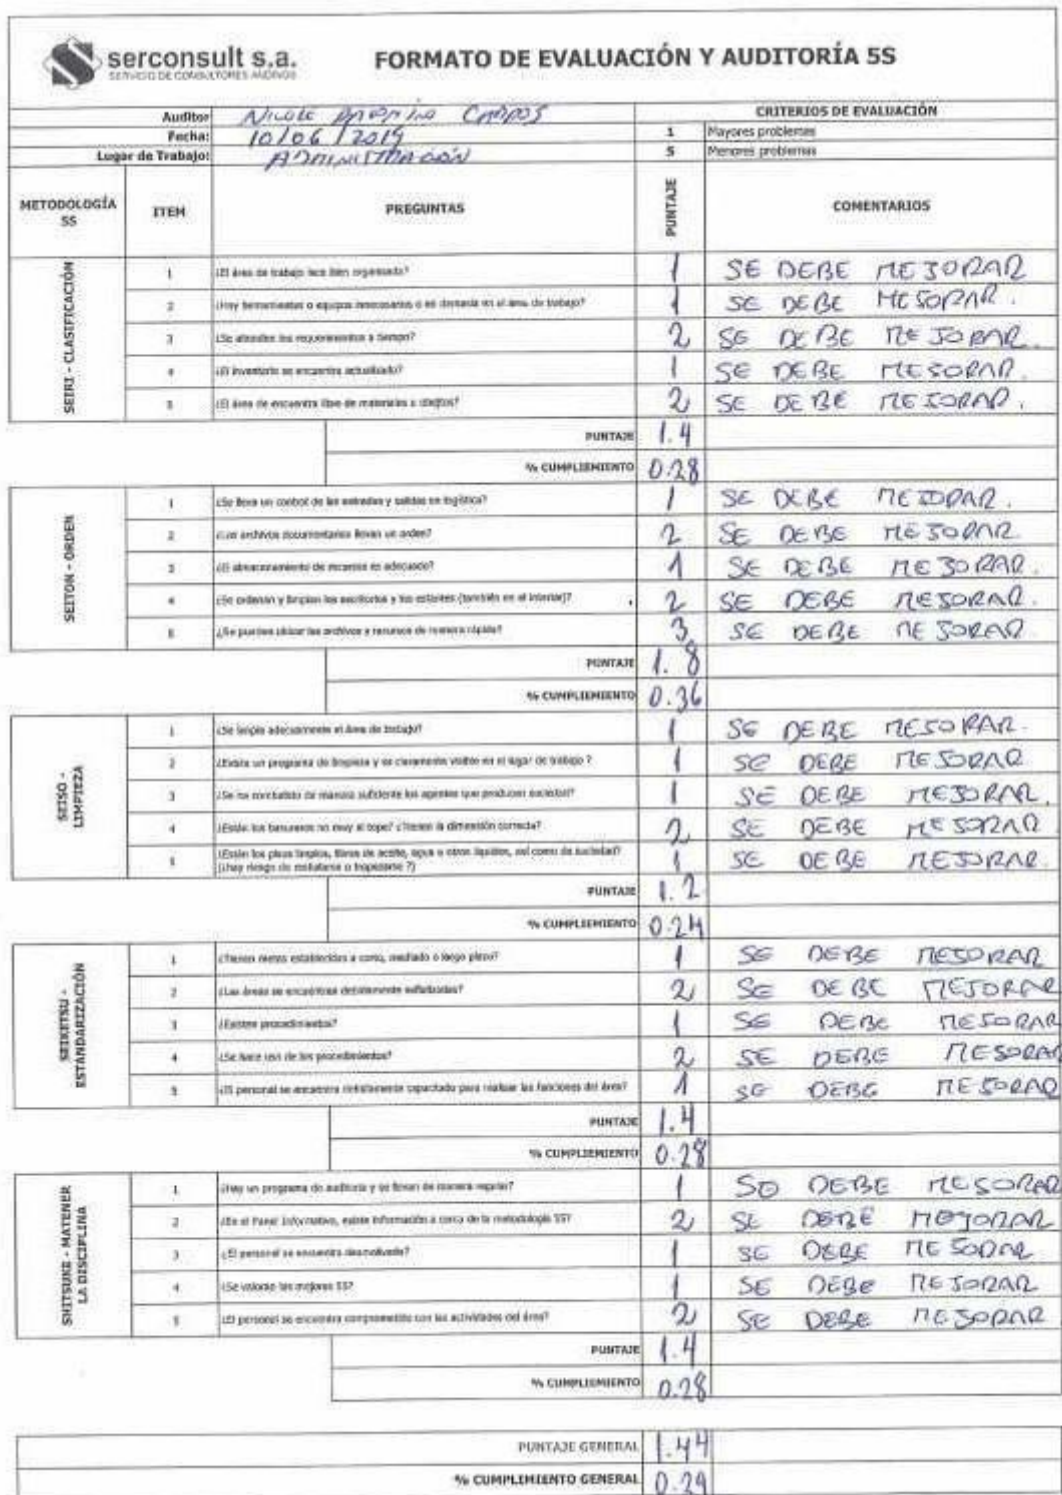 serconsult s.a.
SERVICIO DE CONSULTORES ANDINOS
FORMATO DE EVALUACIÓN Y AUDITORÍA 5S
Auditor
Fecha: 10/06/2019
Lugar de Trabajo: ADMINISTRACIÓN
CRITERIOS DE EVALUACIÓN
1 Mayores problemas
5 Menores problemas
METODOLOGÍA 5S ITEM PREGUNTAS PUNTAJE COMENTARIOS
SEIRI - CLASIFICACIÓN
1 ¿El área de trabajo luce bien organizado? 1 SE DEBE MEJORAR
2 ¿Hay herramientas o equipos innecesarios o en demasía en el área de trabajo? 1 SE DEBE MEJORAR.
3 ¿Se atienden los requerimientos a tiempo? 2 SE DEBE MEJORAR.
4 ¿El inventario se encuentra actualizado? 1 SE DEBE MEJORAR.
5 ¿El área de encuentra libre de materiales u objetos? 2 SE DEBE MEJORAR.
PUNTAJE 1.4
% CUMPLIEMIENTO 0.28
SEITON - ORDEN
1 ¿Se lleva un control de las entradas y salidas en logística? 1 SE DEBE MEJORAR.
2 ¿Los archivos documentarios llevan un orden? 2 SE DEBE MEJORAR
3 ¿El almacenamiento de recursos es adecuado? 1 SE DEBE MEJORAR.
4 ¿Se ordenan y limpian los escritorios y los estantes (también en el interior)? 2 SE DEBE MEJORAR.
5 ¿Se pueden ubicar los archivos y recursos de manera rápida? 3 SE DEBE MEJORAR
PUNTAJE 1.8
% CUMPLIEMIENTO 0.36
SEISO - LIMPIEZA
1 ¿Se limpia adecuadamente el área de trabajo? 1 SE DEBE MEJORAR.
2 ¿Existe un programa de limpieza y es claramente visible en el lugar de trabajo ? 1 SE DEBE MEJORAR
3 ¿Se ha combatido de manera suficiente los agentes que producen suciedad? 1 SE DEBE MEJORAR.
4 ¿Están los basureros no muy al tope? ¿Tienen la dimensión correcta? 2 SE DEBE MEJORAR
5 ¿Están los pisos limpios, libres de aceite, agua u otros líquidos, así como de suciedad?
(¿Hay riesgo de resbalarse o tropezarse ?) 1 SE DEBE MEJORAR.
PUNTAJE 1.2
% CUMPLIEMIENTO 0.24
SEIKETSU - ESTANDARIZACIÓN
1 ¿Tienen metas establecidas a corto, mediado o largo plazo? 1 SE DEBE MEJORAR
2 ¿Las áreas se encuentran debidamente señalizadas? 2 SE DEBE MEJORAR
3 ¿Existen procedimientos? 1 SE DEBE MEJORAR
4 ¿Se hace uso de los procedimientos? 2 SE DEBE MEJORAR
5 ¿El personal se encuentra debidamente capacitado para realizar las funciones del área? 1 SE DEBE MEJORAR
PUNTAJE 1.4
% CUMPLIEMIENTO 0.28
SHITSUKE - MATENER LA DISCIPLINA
1 ¿Hay un programa de auditoria y se llevan de manera regular? 1 SE DEBE MEJORAR
2 ¿En el Panel Informativo, existe información a cerca de la metodología 5S? 2 SE DEBE MEJORAR
3 ¿El personal se encuentra 1 SE DEBE MEJORAR
4 ¿Se valoran las mejoras 5S? 1 SE DEBE MEJORAR
5 ¿El personal se encuentra comprometido con las actividades del área? 2 SE DEBE MEJORAR
PUNTAJE 1.4
% CUMPLIEMIENTO 0.28
PUNTAJE GENERAL 1.44
% CUMPLIMIENTO GENERAL 0.29